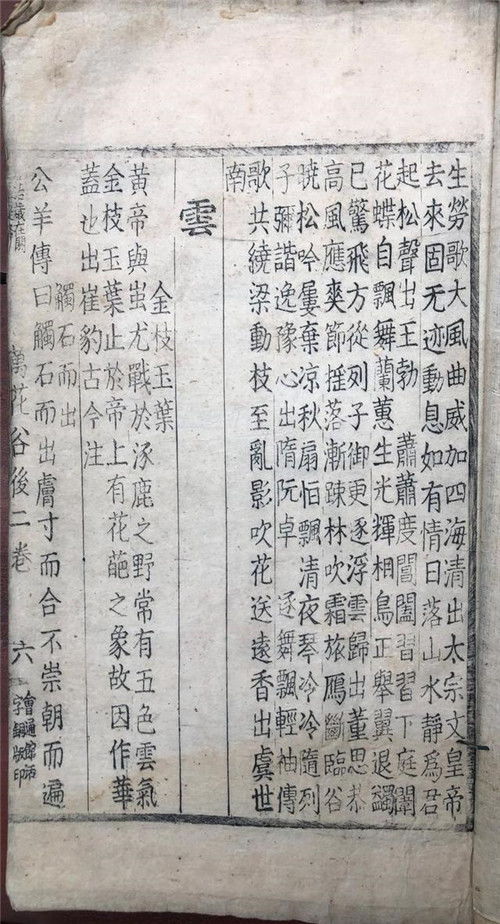 生勞歌大風曲威加四海清出太宗文皇帝
去來固无迹動息如有情日落山水靜爲君
起松聲出王勃 蕭蕭度閶闔習習下庭闈
花蝶自飄舞蘭蕙生光輝相烏正舉翼退鷁
已驚飛方從列子御更逐浮雲歸出董思恭
高風應爽節揺落漸踈林吹霜旅鴈斷臨谷
曉松吟屢棄凉秋扇怕飄清夜琴泠泠隨列
子彌諧逸豫心出隋阮卓 逐舞飄輕袖傳
歌共繞梁動枝至亂影吹花送遠香出虞世
南
雲
金枝玉葉
黄帝與蚩尤戰於涿鹿之野常有五色雲氣
金枝玉葉止於帝上有花葩之象故因作華
蓋也出崔豹古今注
觸石而出
公羊傳曰觸石而出膚寸而合不崇朝而遍
萬花谷後二卷 六
會通館活
字銅版印